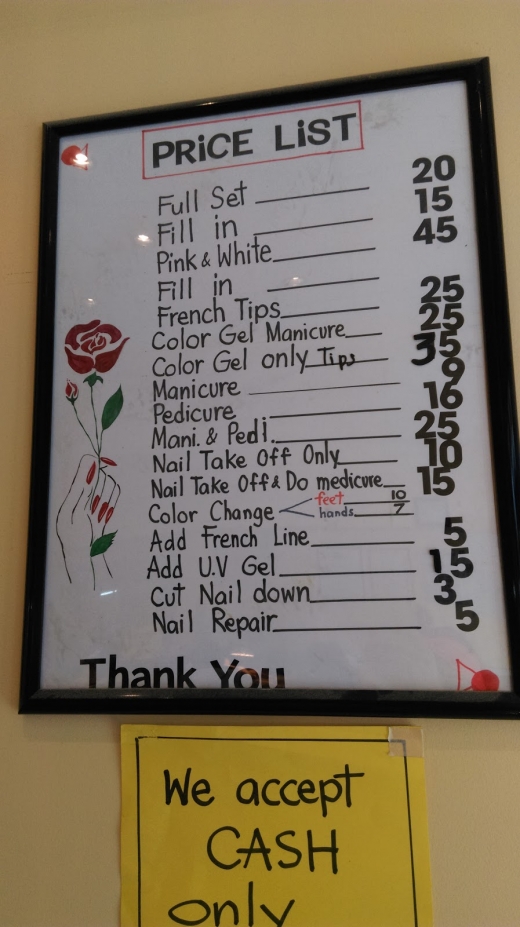 PRiCE LiST
Full Set 20
Fill in 15
Pink & White 45
Fill in
French Tips 25
Color Gel Manicure 25
Color Gel only Tips 35
Manicure 9
Pedicure 16
Mani. & Pedi. 25
Nail Take Off Only 10
Nail Take Off & Do medicure 15
Color Change feet 10
hands 7
Add French Line 5
Add U.V Gel 15
Cut Nail down 3
Nail Repair 5
Thank You
We accept
CASH
only